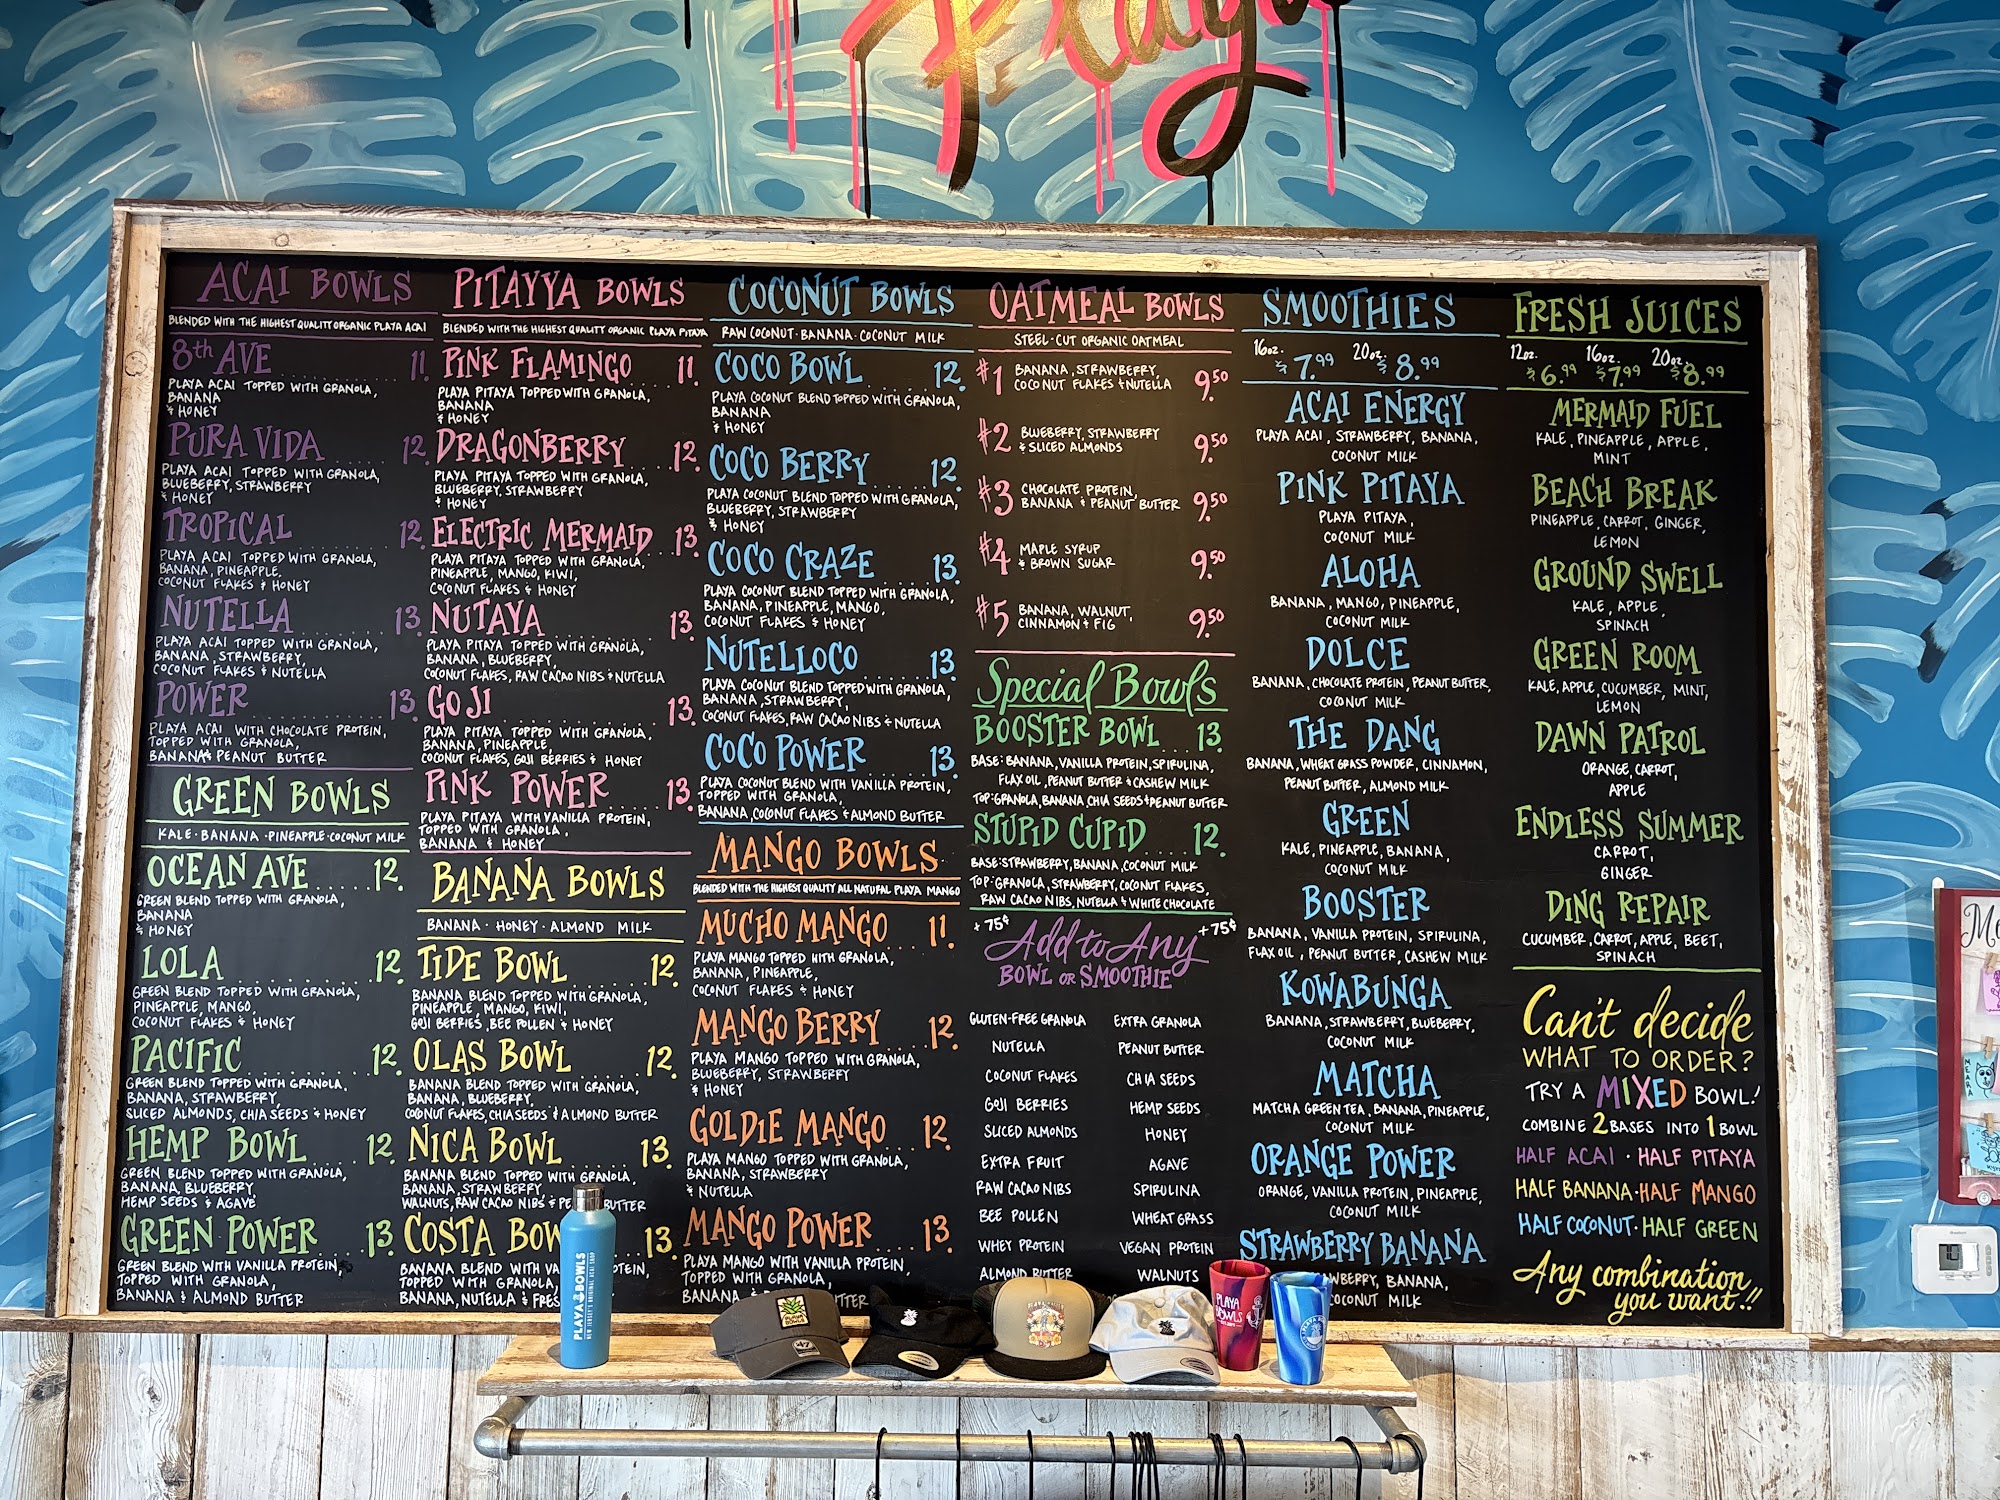 Playa
ACAI BOWLS
BLENDED WITH THE HIGHEST QUALITY ORGANIC PLAYA ACAI
8th AVE 11.
PLAYA ACAI TOPPED WITH GRANOLA,
BANANA
& HONEY
PURA VIDA 12.
PLAYA ACAI TOPPED WITH GRANOLA,
BLUEBERRY, STRAWBERRY
& HONEY
TROPICAL 12.
PLAYA ACAI TOPPED WITH GRANOLA,
BANANA, PINEAPPLE,
COCONUT FLAKES & HONEY
NUTELLA 13.
PLAYA ACAI TOPPED WITH GRANOLA,
BANANA, STRAWBERRY,
COCONUT FLAKES & NUTELLA
POWER 13.
PLAYA ACAI WITH CHOCOLATE PROTEIN,
TOPPED WITH GRANOLA,
BANANA & PEANUT BUTTER
GREEN BOWLS
KALE · BANANA · PINEAPPLE · COCONUT MILK
OCEAN AVE 12.
GREEN BLEND TOPPED WITH GRANOLA,
BANANA
& HONEY
LOLA 12.
GREEN BLEND TOPPED WITH GRANOLA,
PINEAPPLE, MANGO,
COCONUT FLAKES & HONEY
PACIFIC 12.
GREEN BLEND TOPPED WITH GRANOLA,
BANANA, STRAWBERRY,
SLICED ALMONDS, CHIA SEEDS & HONEY
HEMP BOWL 12.
GREEN BLEND TOPPED WITH GRANOLA,
BANANA, BLUEBERRY,
HEMP SEEDS & AGAVE
GREEN POWER 13.
GREEN BLEND WITH VANILLA PROTEIN,
TOPPED WITH GRANOLA,
BANANA & ALMOND BUTTER
PITAYYA BOWLS
BLENDED WITH THE HIGHEST QUALITY ORGANIC PLAYA PITAYA
PINK FLAMINGO 11.
PLAYA PITAYA TOPPED WITH GRANOLA,
BANANA
& HONEY
DRAGONBERRY 12.
PLAYA PITAYA TOPPED WITH GRANOLA,
BLUEBERRY, STRAWBERRY
& HONEY
ELECTRIC MERMAID 13.
PLAYA PITAYA TOPPED WITH GRANOLA,
PINEAPPLE, MANGO, KIWI,
COCONUT FLAKES & HONEY
NUTAYA 13.
PLAYA PITAYA TOPPED WITH GRANOLA,
BANANA, BLUEBERRY,
COCONUT FLAKES, RAW CACAO NIBS & NUTELLA
GOJI 13.
PLAYA PITAYA TOPPED WITH GRANOLA,
BANANA, PINEAPPLE,
COCONUT FLAKES, GOJI BERRIES & HONEY
PINK POWER 13.
PLAYA PITAYA WITH VANILLA PROTEIN,
TOPPED WITH GRANOLA,
BANANA & HONEY
BANANA BOWLS
BANANA · HONEY · ALMOND MILK
TIDE BOWL 12.
BANANA BLEND TOPPED WITH GRANOLA,
PINEAPPLE, MANGO, KIWI,
GOJI BERRIES, BEE POLLEN & HONEY
OLAS BOWL 12.
BANANA BLEND TOPPED WITH GRANOLA,
BANANA, BLUEBERRY,
COCONUT FLAKES, CHIA SEEDS & ALMOND BUTTER
NICA BOWL 13.
BANANA BLEND TOPPED WITH GRANOLA,
BANANA, STRAWBERRY,
WALNUTS, RAW CACAO NIBS & PE BUTTER
COSTA BOW 13.
BANANA BLEND WITH VA OTEIN,
TOPPED WITH GRANOLA,
BANANA, NUTELLA & FRES
COCONUT BOWLS
RAW COCONUT · BANANA · COCONUT MILK
COCO BOWL 12.
PLAYA COCONUT BLEND TOPPED WITH GRANOLA,
BANANA
& HONEY
COCO BERRY 12.
PLAYA COCONUT BLEND TOPPED WITH GRANOLA,
BLUEBERRY, STRAWBERRY
& HONEY
COCO CRAZE 13.
PLAYA COCONUT BLEND TOPPED WITH GRANOLA,
BANANA, PINEAPPLE, MANGO,
COCONUT FLAKES & HONEY
NUTELLOCO 13.
PLAYA COCONUT BLEND TOPPED WITH GRANOLA,
BANANA, STRAWBERRY,
COCONUT FLAKES, RAW CACAO NIBS & NUTELLA
COCO POWER 13.
PLAYA COCONUT BLEND WITH VANILLA PROTEIN,
TOPPED WITH GRANOLA,
BANANA, COCONUT FLAKES & ALMOND BUTTER
MANGO BOWLS
BLENDED WITH THE HIGHEST QUALITY ALL NATURAL PLAYA MANGO
MUCHO MANGO 11.
PLAYA MANGO TOPPED WITH GRANOLA,
BANANA, PINEAPPLE,
COCONUT FLAKES & HONEY
MANGO BERRY 12.
PLAYA MANGO TOPPED WITH GRANOLA,
BLUEBERRY, STRAWBERRY
& HONEY
GOLDIE MANGO 12.
PLAYA MANGO TOPPED WITH GRANOLA,
BANANA, STRAWBERRY
& NUTELLA
MANGO POWER 13.
PLAYA MANGO WITH VANILLA PROTEIN,
TOPPED WITH GRANOLA,
BANANA & TTER
OATMEAL BOWLS
STEEL-CUT ORGANIC OATMEAL
#1 BANANA, STRAWBERRY,
COCONUT FLAKES & NUTELLA 9.50
#2 BLUEBERRY, STRAWBERRY
& SLICED ALMONDS 9.50
#3 CHOCOLATE PROTEIN,
BANANA & PEANUT BUTTER 9.50
#4 MAPLE SYRUP
& BROWN SUGAR 9.50
#5 BANANA, WALNUT,
CINNAMON & FIG 9.50
Special Bowls
BOOSTER BOWL 13.
BASE: BANANA, VANILLA PROTEIN, SPIRULINA,
FLAX OIL, PEANUT BUTTER & CASHEW MILK
TOP: GRANOLA, BANANA, CHIA SEEDS & PEANUT BUTTER
STUPID CUPID 12.
BASE: STRAWBERRY, BANANA, COCONUT MILK
TOP: GRANOLA, STRAWBERRY, COCONUT FLAKES,
RAW CACAO NIBS, NUTELLA & WHITE CHOCOLATE
+75¢ Add to Any +75¢
BOWL OR SMOOTHIE
GLUTEN-FREE GRANOLA EXTRA GRANOLA
NUTELLA PEANUT BUTTER
COCONUT FLAKES CHIA SEEDS
GOJI BERRIES HEMP SEEDS
SLICED ALMONDS HONEY
EXTRA FRUIT AGAVE
RAW CACAO NIBS SPIRULINA
BEE POLLEN WHEAT GRASS
WHEY PROTEIN VEGAN PROTEIN
ALMOND BUTTER WALNUTS
SMOOTHIES
16oz. $7.99 20oz. $8.99
ACAI ENERGY
PLAYA ACAI, STRAWBERRY, BANANA,
COCONUT MILK
PINK PITAYA
PLAYA PITAYA,
COCONUT MILK
ALOHA
BANANA, MANGO, PINEAPPLE,
COCONUT MILK
DOLCE
BANANA, CHOCOLATE PROTEIN, PEANUT BUTTER,
COCONUT MILK
THE DANG
BANANA, WHEAT GRASS POWDER, CINNAMON,
PEANUT BUTTER, ALMOND MILK
GREEN
KALE, PINEAPPLE, BANANA,
COCONUT MILK
BOOSTER
BANANA, VANILLA PROTEIN, SPIRULINA,
FLAX OIL, PEANUT BUTTER, CASHEW MILK
KOWABUNGA
BANANA, STRAWBERRY, BLUEBERRY,
COCONUT MILK
MATCHA
MATCHA GREEN TEA, BANANA, PINEAPPLE,
COCONUT MILK
ORANGE POWER
ORANGE, VANILLA PROTEIN, PINEAPPLE,
COCONUT MILK
STRAWBERRY BANANA
WBERRY, BANANA,
COCONUT MILK
FRESH JUICES
12oz. $6.99 16oz. $7.99 20oz. $8.99
MERMAID FUEL
KALE, PINEAPPLE, APPLE,
MINT
BEACH BREAK
PINEAPPLE, CARROT, GINGER,
LEMON
GROUND SWELL
KALE, APPLE,
SPINACH
GREEN ROOM
KALE, APPLE, CUCUMBER, MINT,
LEMON
DAWN PATROL
ORANGE, CARROT,
APPLE
ENDLESS SUMMER
CARROT,
GINGER
DING REPAIR
CUCUMBER, CARROT, APPLE, BEET,
SPINACH
Can't decide
WHAT TO ORDER?
TRY A MIXED BOWL!
COMBINE 2 BASES INTO 1 BOWL
HALF ACAI · HALF PITAYA
HALF BANANA · HALF MANGO
HALF COCONUT · HALF GREEN
Any combination
you want!!
Me
MEARA
PLAYA BOWLS
NEW JERSEY'S ORIGINAL ACAI SHOP
47
PLAYA
BOWLS